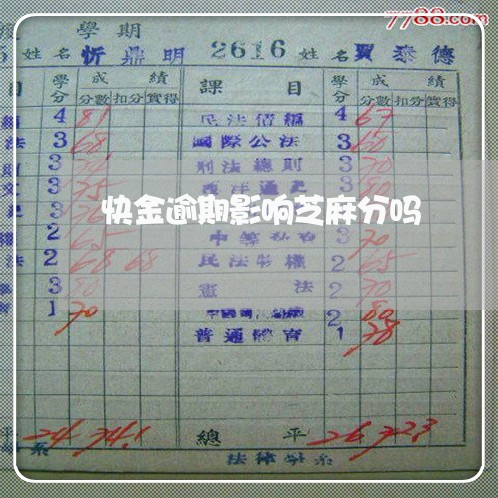 7788.com
學期
姓名 忻鼎明 2616 姓名 賈泰德
目 學分 成績 課目 學分 成績
分數 扣分 實得 分數 扣分 實得
4 81 民法債編 4 67
法 3 68 國際公法 3 60
3 刑法總則 3 70
3 75 西洋通史 3 80
快金逾期影响芝麻分吗
2 65 3 70
法 2 68 68 民法物權 2 65
3 80 憲法 2 70
1 70 2 80
普通體育 1 78
平 24 74.1 總平 26 72.3
系 法律學系